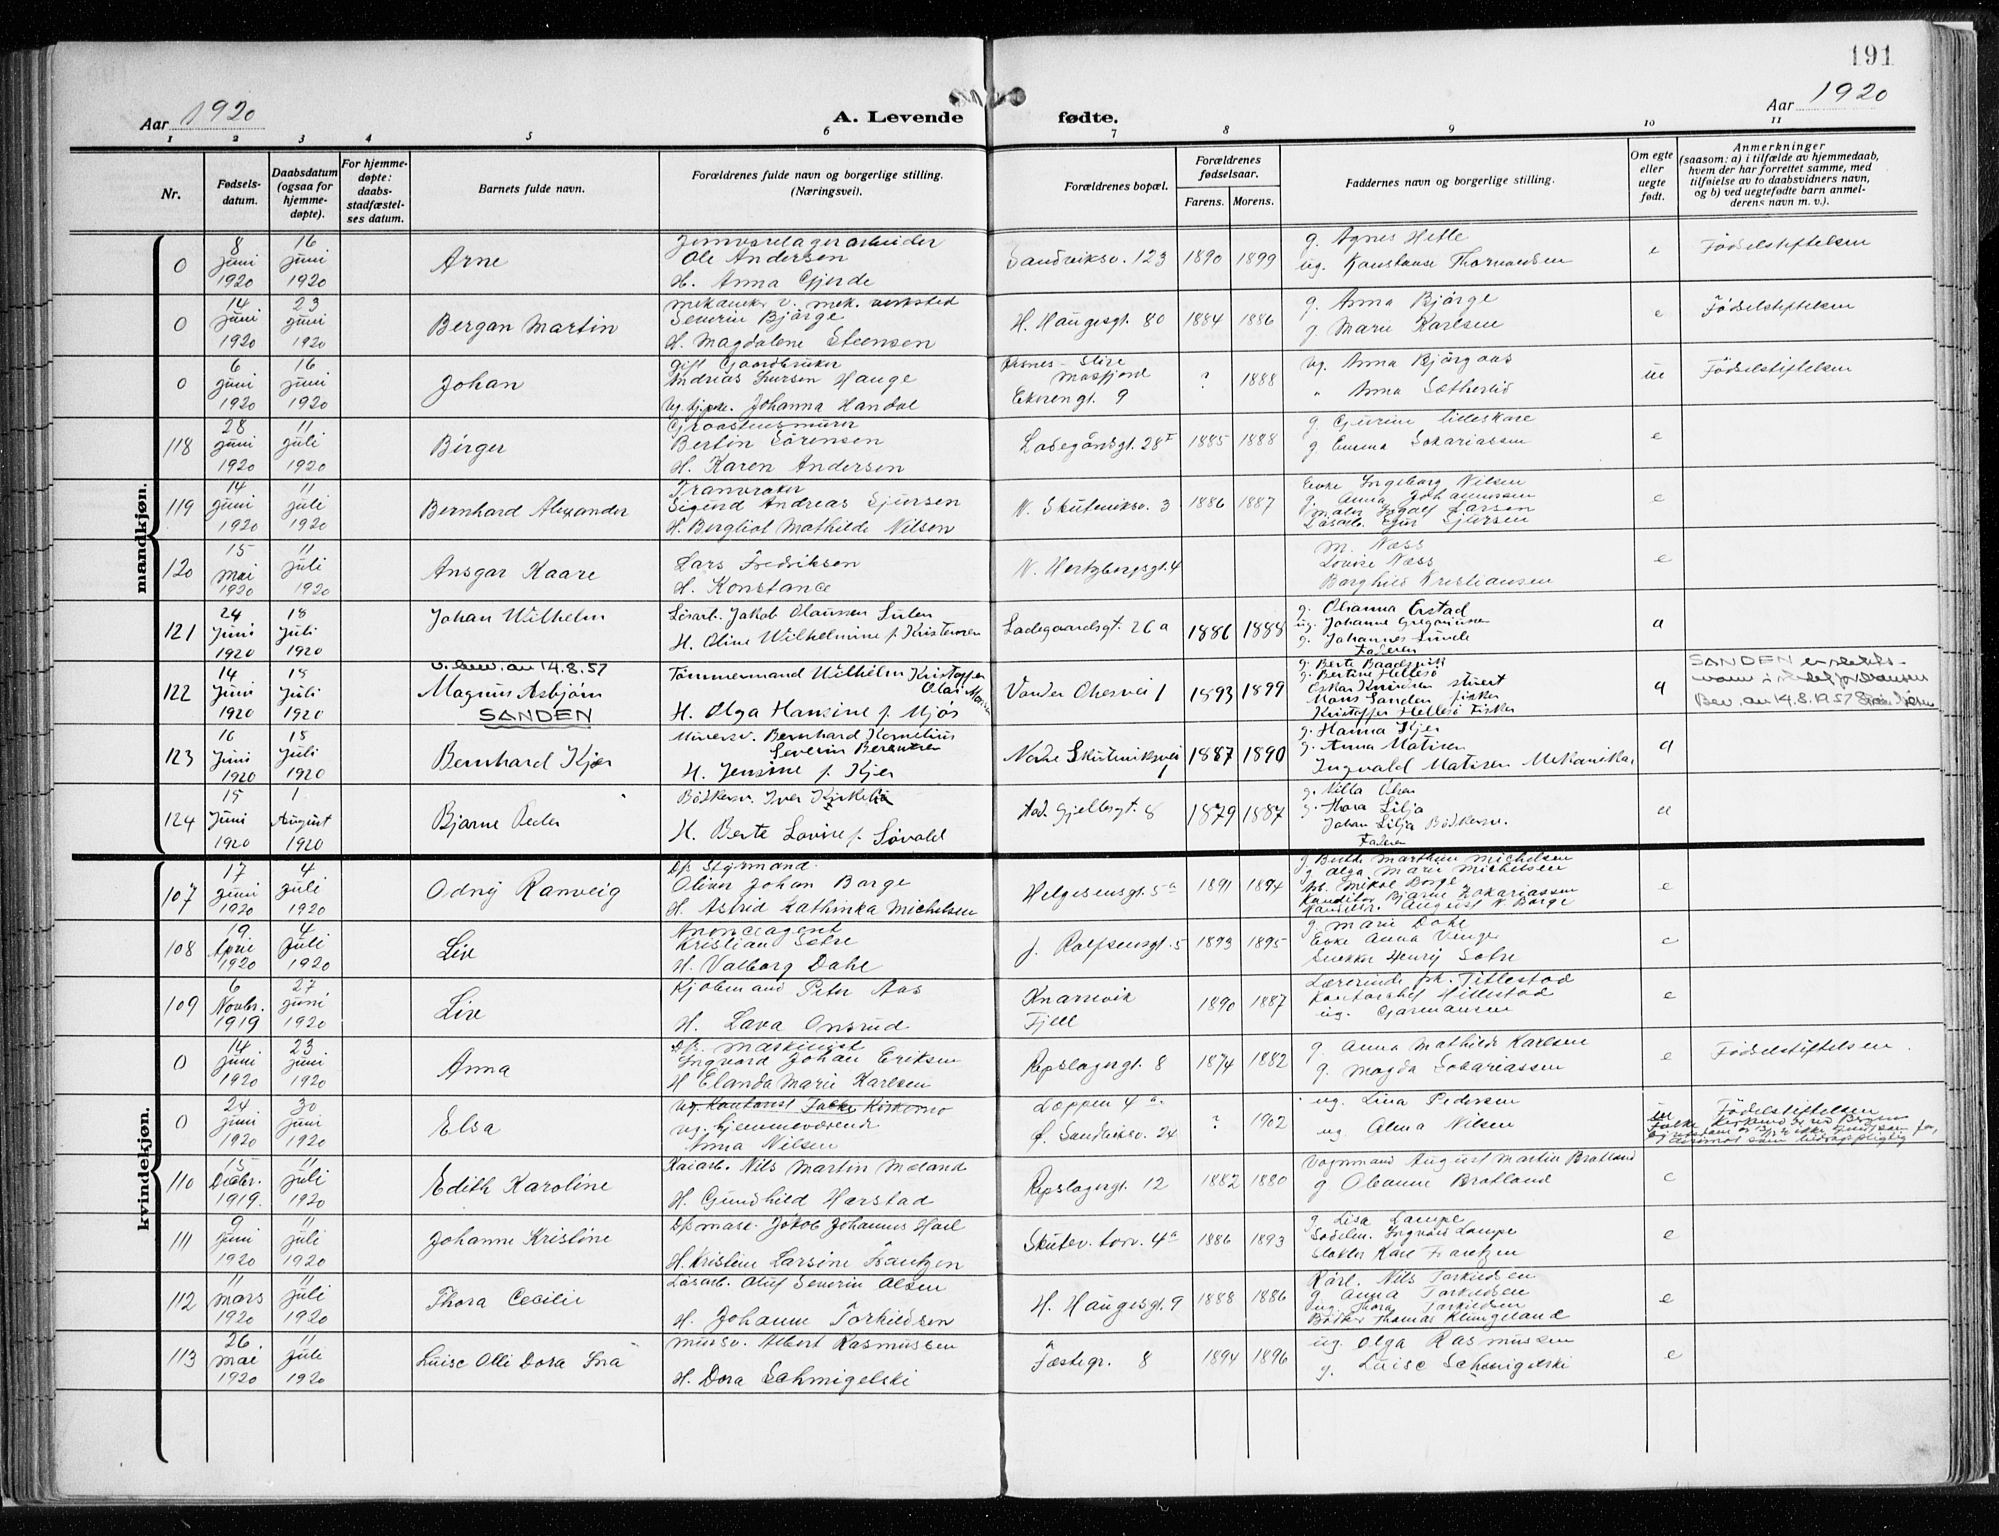 191
Aar 1920
A. Levende fødte.
Aar 1920
1 2 3 4 5 6 7 8 9 10 11
Nr.
Fødsels-
datum.
Daabsdatum
(ogsaa for
hjemme-
døpte).
For hjemme-
døpte:
daabs-
stadfæstel-
ses datum.
Barnets fulde navn.
Forældrenes fulde navn og borgerlige stilling.
(Næringsvei).
Forældrenes bopæl.
Forældrenes
fødselsaar.
Farens. Morens.
Faddernes navn og borgerlige stilling.
Om egte
eller
uegte
født.
Anmerkninger
(saasom: a) i tilfælde av hjemmedaab,
hvem der har forrettet samme, med
tilføielse av to daabsvidners navn,
og b) ved uegtefødte barn anmel-
derens navn m. v.).
mandkjøn.
0
8 Juni 1920
16 Juni 1920
Arne
Jernvarelagerarbeider
Ole Andersen
H. Anna Gjerde
Sandviksv. 123
1890 1899
g. Agnes Hetle
ug. Konstanse Thorvaldsen
e
Fødselstiftelsen
0
14 Juni 1920
23 Juni 1920
Bergan Martin
Mekaniker v. mek. verksted
Severin Bjørge
H. Magdalene Steensen
H. Haugesgt. 80
1884 1886
g. Anna Bjørge
g Marie Karlsen
e
Fødselstiftelsen
0
6 Juni 1920
16 Juni 1920
Johan
Gift Gaardbruker
Andreas Hauge
Ug. tjpk. Johanna Handal
Masfjord
Ekrengt 9
? 1888
ug. Anna Bjørgaas
" Anna Sætherlid
ue
Fødselstiftelsen
118
28 Juni 1920
11 Juli 1920
Birger
Graastensmurer
Bertin Sørensen
H. Karen Andersen
Ladegårdsgt 28 I
1885 1888
g. Gjurine Lilleskare
g Emma Sakariassen
e
119
14 Juni 1920
11 Juli 1920
Bernhard Alexander
Tranvraker
Sigurd Andreas Sjursen
H. Bergliot Mathilde Nilsen
N. Skuteviksv. 3
1886 1887
Enke Ingeborg Nilsen
g. Anna Johannessen
Maler Ingolf Larsen
Løsarb. Sjursen
e
120
15 Mai 1920
11 Juli 1920
Ansgar Kaare
Lars Fredriksen
H. Konstance
W. Hertzbergsgt. 4
M. Næss
Lovise Næss
Borghild Kristiansen
e
121
24 Juni 1920
18 Juli 1920
Johan Wilhelm
Løsarb. Jakob Olaussen Sulen
H. Oline Wilhelmine f. Kristensen
Ladegaardsgt. 26 a
1886 1888
g. Olianna Erstad
ug. Johanne Gregoriussen
g. Johannes Sunde
Faderen
e
122
14 Juni 1920
18 Juli 1920
v. bev. av 14.8.57
Magnus Asbjørn
SANDEN
Tømmermand Wilhelm Kristoffer
H. Olga Hansine f. Mjøs
1893 1899
g. Bertine Hellesø
Oskar Knudsen stuert
Mons Sanden fisker
Kristoffer Hellesø Fisker
e
SANDEN er slekts-
Bev. av 14.8.1957
123
16 Juni 1920
18 Juli 1920
Bernhard Kjer
Murersv. Bernhard Kornelius
Severin Berentsen
H. Jensine f. Kjer
Nedre Skuteviksvei
1
1887 1890
g. Hanna Kjer
g. Anna Matisen
Ingvald Matisen Mekaniker
e
124
15 Juni 1920
1 August 1920
Bjarne Peder
Bødkersv. Iver Kirkelie
H. Berte Lovise f. Løvald
Aad Gjellesgt. 8
1879 1887
g. Nilla Olsen
g. Thora Lilja
Johan Lilja Bødkersv.
Faderen
e
kvindekjøn.
107
17 Juni 1920
4 Juli 1920
Odny Ranveig
D/s Styrmand
Oliver Johan Borge
H. Astrid Kathinka Michelsen
Helgesensgt. 5 a
1891 1894
g. Berthe Marthine Michelsen
g Olga Marie Michelsen
Arb. Mikal Borge
Konditor Bjarne Zakariassen
August N. Borge
e
108
19 April 1920
4 Juli 1920
Liv
Anonceagent
Kristian Sætre
H. Valborg Dahl
J. Rolfsensgt. 5
1893 1895
g Marie Dahl
Enke Anna Venge
Snekker Henry Sætre
e
109
6 Novbr. 1919
27 Juni 1920
Liv
Kjøbmand Peter Aas
H. Lava Onsrud
Knarrevik
Fjell
1890 1887
Lærerinde frk. Tittlestad
Kontorchef Hillestad
ug. Gjermansen
e
0
14 Juni 1920
23 Juni 1920
Anna
D/s. Maskinist
Ingvard Johan Eriksen
H Elanda Marie Karlsen
Repslagergt. 8
1874 1882
g Anna Mathilde Karlsen
g. Magda Sakariassen
e
Fødselstiftelsen.
0
24 Juni 1920
30 Juni 1920
Elsa
Ug. Kontorist Falke Kirkemo
ug. hjemmeværende
Anna Nilsen
Læppen 4 a
Ø. Sandviksv. 24
? 1902
ug. Lina Pedersen
ug Alma Nilsen
ue
Fødselstiftelsen
Falke Kirkemo
som bidragspligtig
110
15 Decbr. 1919.
11 Juli 1920
Edith Karoline
Kaiarb. Nils Martin Mæland
H. Gundhild Harstad
Repslagergt. 12
1882 1880
Vognmand August Martin Bratland
g Oleanne Bratland
e
111
9 Juni 1920
11 Juli 1920
Johanne Kristine
D/s mask. Jakob Johannes Hall
H. Kristine Larsine Frantzen
Skutev. torv. 4 a
1886 1893
g Lisa Lampe
Sadelm. Ingvald Lampe
Slakter Karl Frantzen
e
112
11 Mars 1920
11 Juli 1920
Thora Cecilie
Løsarb. Oluf Severin Olsen
H. Johanne Torkildsen
H. Haugesgt 9
1888 1886
Rørl. Nils Torkildsen
g. Anna Torkildsen
ug. Thora Torkildsen
Bødker Thomas Klungeland
e
113
26. Mai 1920
11 Juli 1920
Luise Olli Dora Ina
Mursv. Albert Rasmussen
H. Dora Schmigelski
Fæstegr. 8
1894 1896
ug Olga Rasmussen
g. Luise Schmigelski
e